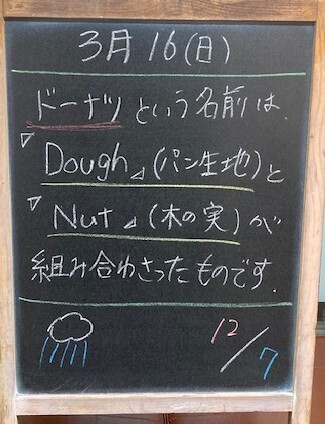 3月16(日)
ドーナツという名前は、
『Dough』(パン生地)と
『Nut』(木の実)が
組み合わさったものです.
12/7